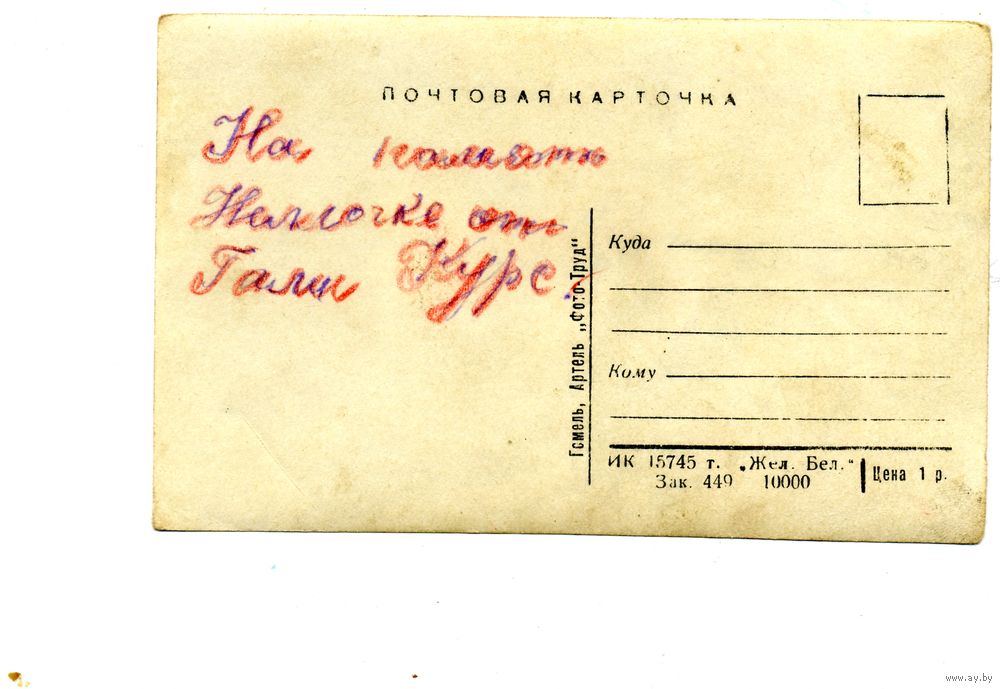 ПОЧТОВАЯ КАРТОЧКА
На память
Неллочке от
Гали Курс.
Гомель, Артель „Фото-Труд"
Куда
Кому
ИК 15745 т. „Жел. Бел."
Зак. 449 10000
Цена 1 р.
www.ay.by